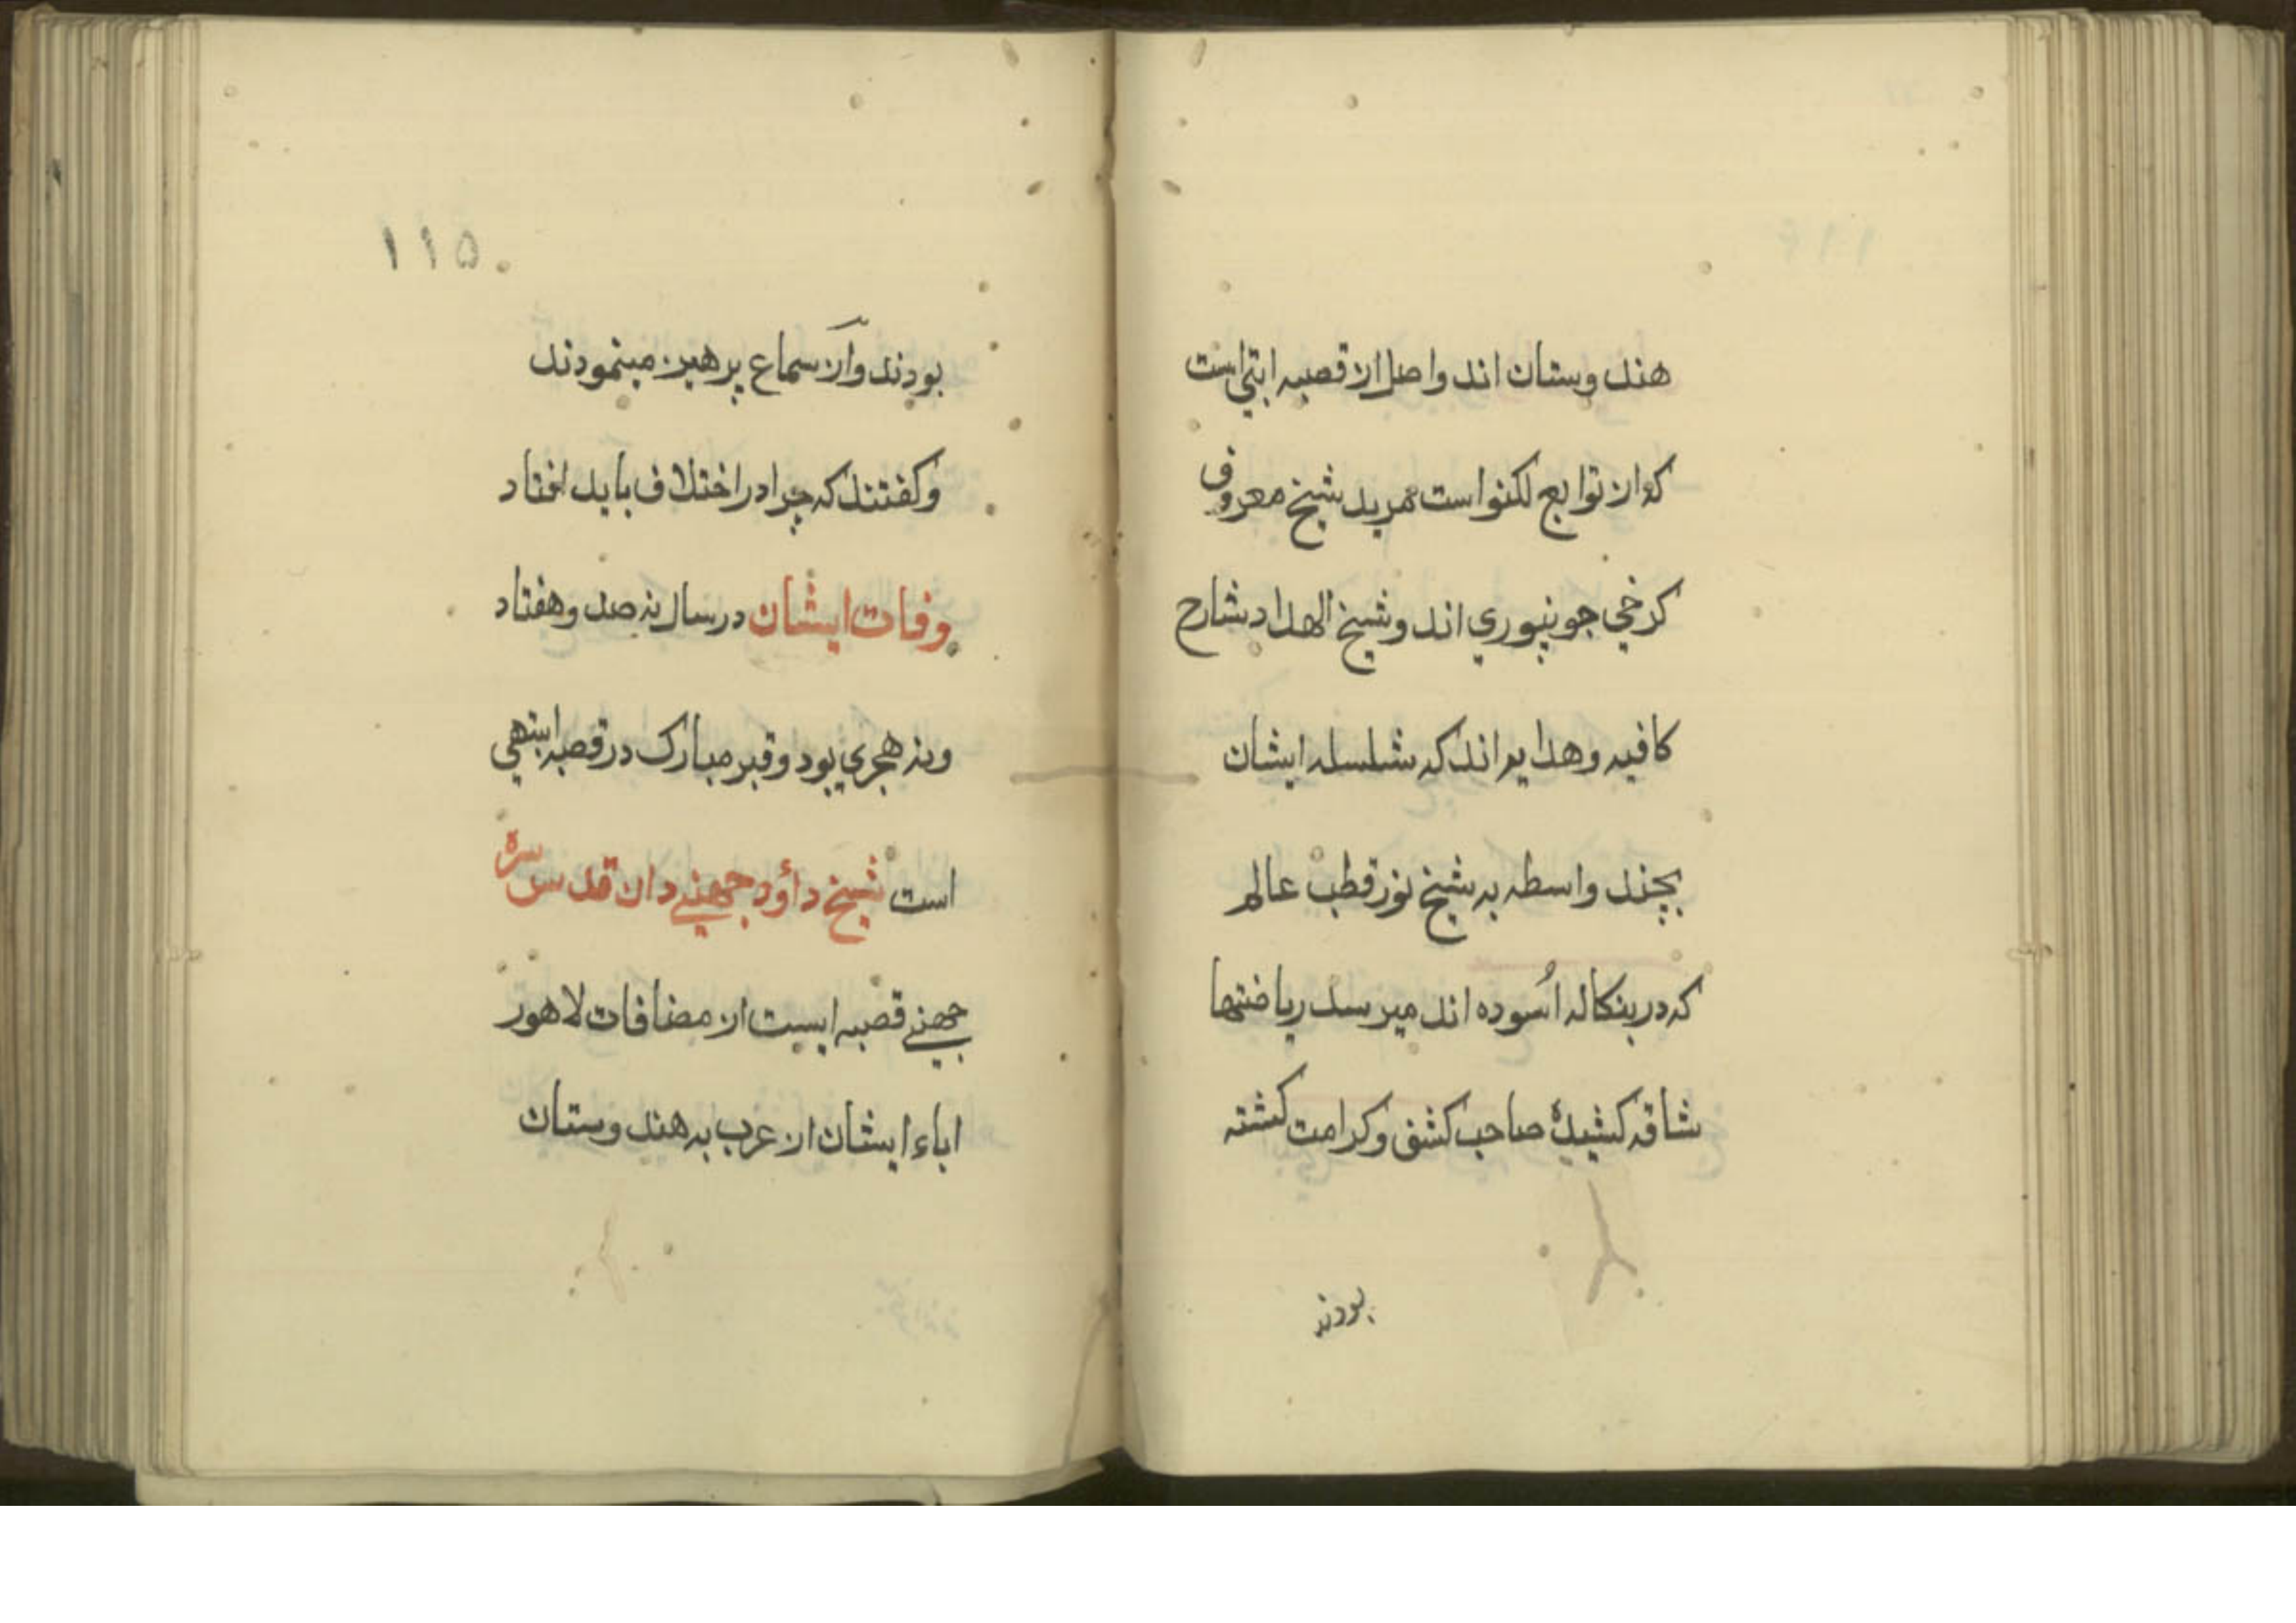 هندوستان اند واصل از قصبه ابتی است
که از توابع لکنواست مرید شیخ معروف
کرخي جونپوري اند و شیخ الهداد شارح
کافیه وهدایه اند که سلسله ایشان
بچند واسطه به شیخ نور قطب عالم
که در بنکاله اسُوده اند میرسد ریاضتها
شاقه کشیدهٔ صاحب کشف و کرامت کشته
بودند
۱۱۵
بودند و آز سماع پرهیز مینمودند
و کفتند که چرا در اختلاف باید افتاد
وفات ایشان در سال نه صد و هفتاد
ونه هجري بود و قبر مبارک در قصبه ابنتهي
است شیخ داؤد جهنے دان قدس سره
جهنے قصبه ایست از مضافات لاهور
اباء ایشان از عرب به هندوستان